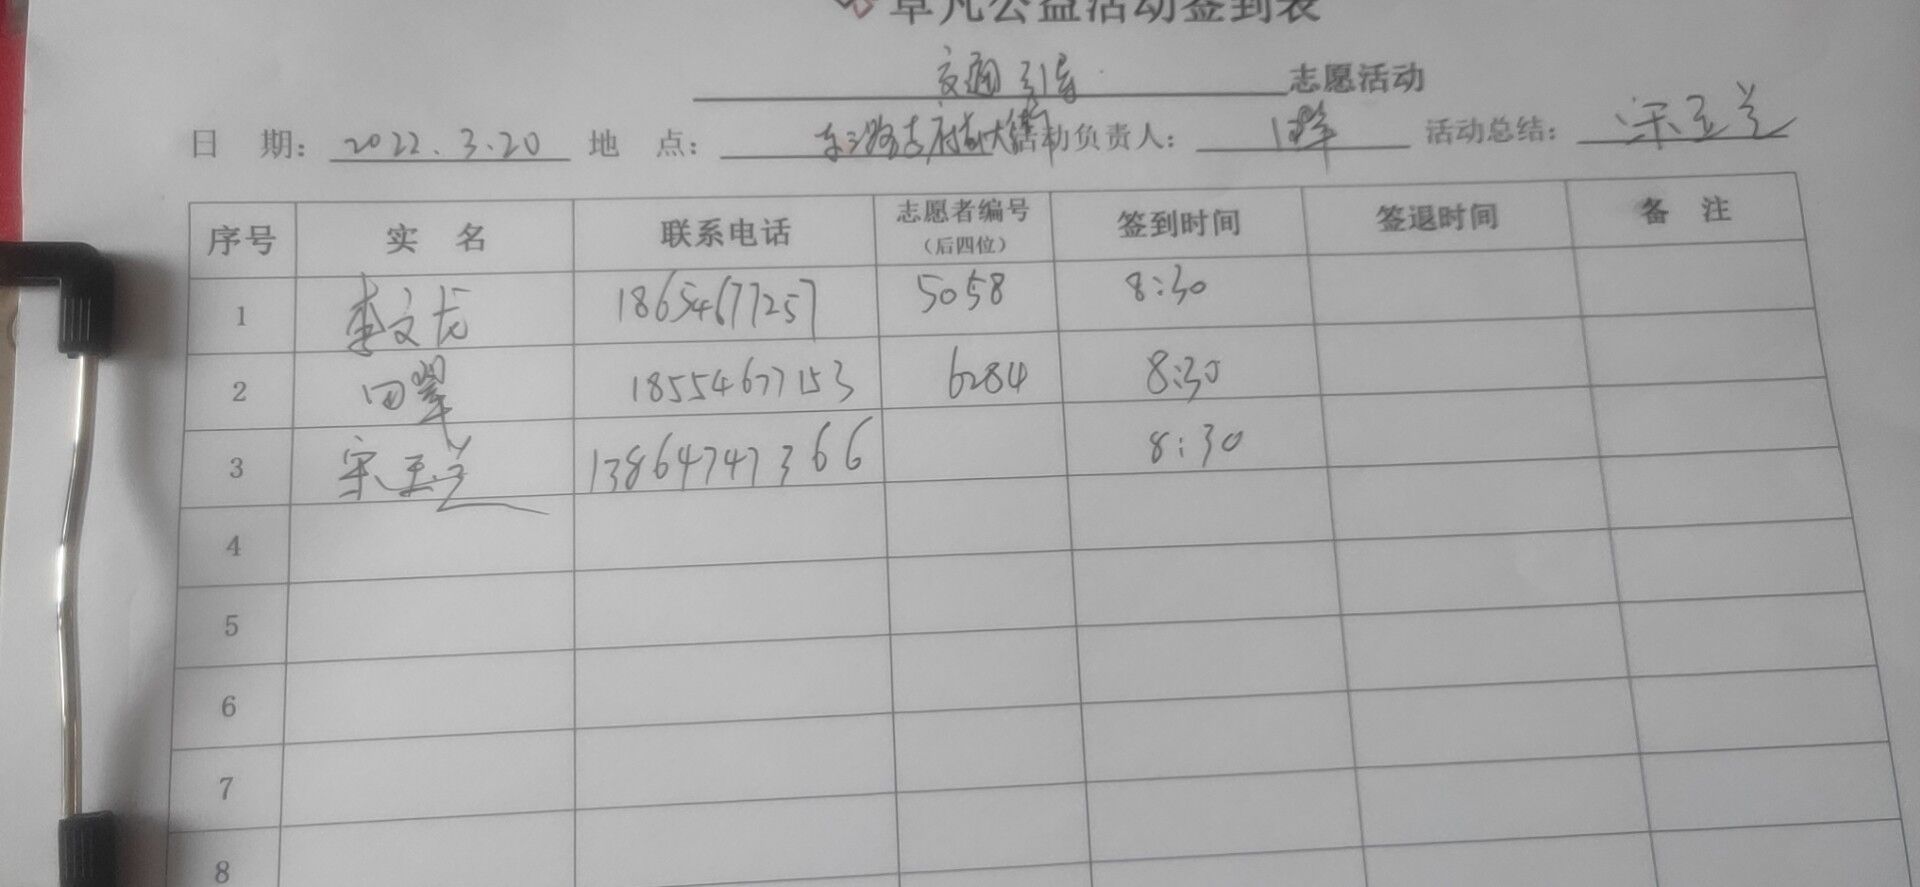 草凡公益活动签到表
交通引导 志愿活动
日 期: 2022.3.20 地 点: 东三路 活动负责人: 活动总结: 宋玉兰
序号 实 名 联系电话 志愿者编号 (后四位) 签到时间 签退时间 备 注
1 李文龙 18654677257 5058 8:30
2 田翠 18554677153 6284 8:30
3 宋玉兰 13864747366 8:30
4
5
6
7
8